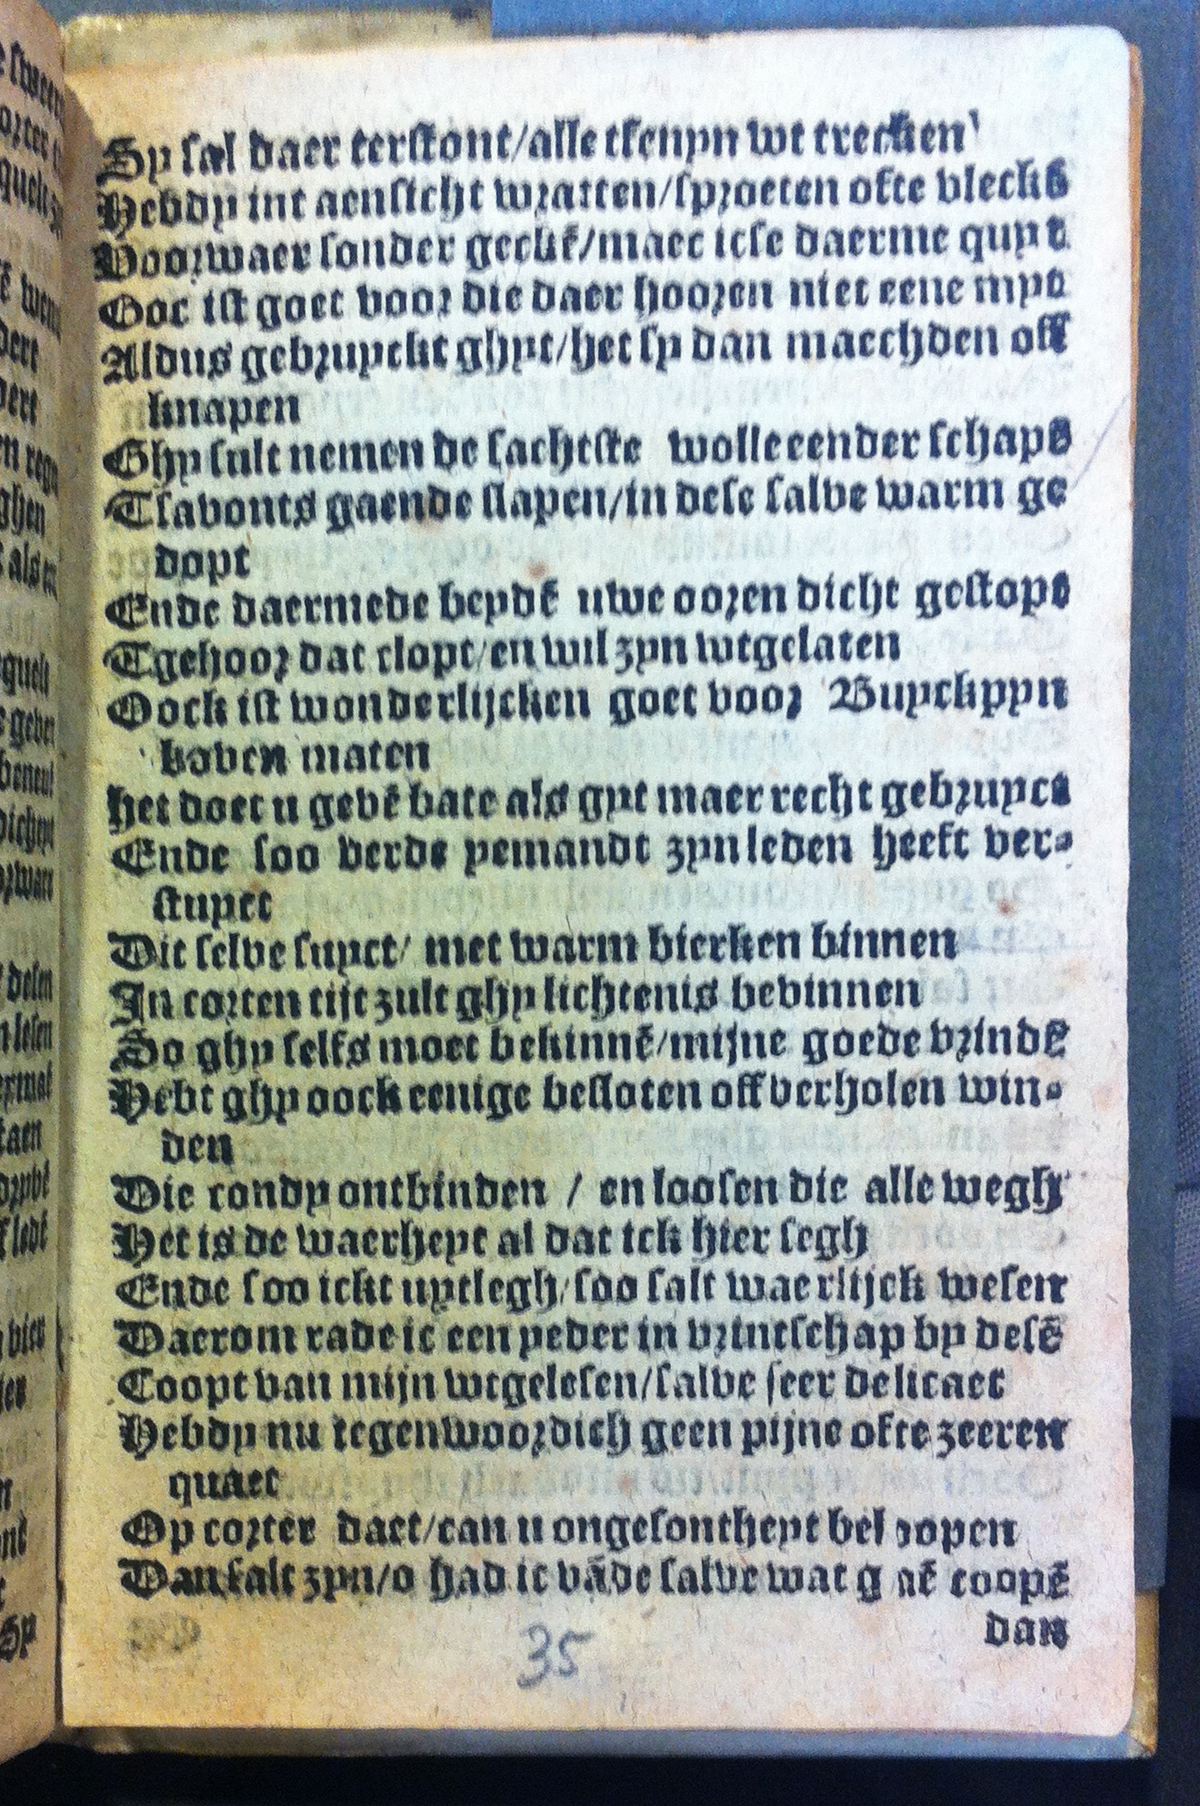 Sy sal daer terstont/alle tfenyn wt trecken
Hebdy int aensicht wratten/sproeten ofte vlecks
Voorwaer sonder geckē/maec icse daerme quyt
Ooc ist goet voor die daer hooren niet eene myt
Aldus gebruyckt ghyt/het sy dan maechden off
knapen
Ghy sult nemen de sachtste wolle eender schaps
Tsavonts gaende slapen/in dese salve warm ge
dopt
Ende daermede beydē uwe ooren dicht gestopt
Tgehoor dat clopt/en wil zyn wtgelaten
Oock ist wonderlijcken goet voor Buyckpyn
boven maten
Het doet u gevē bate als gyt maer recht gebruyct
Ende soo verde yemandt zyn leden heeft ver-
stuyct
Dit selve suyct/ met warm bierken binnen
In corten tijt zult ghy lichtenis bevinnen
So ghy selfs moet bekinnē/mijne goede vrindē
Hebt ghy oock eenige besloten off verholen win-
den
Die condy ontbinden / en loosen die alle wegh
Het is de waerheyt al dat ick hier segh
Ende soo ickt uytlegh/soo salt waerlijck wesen
Daerom rade ic een yeder in vrintschap by desē
Coopt van mijn wtgelesen/salve seer delicaet
Hebdy nu tegenwoordich geen pijne ofte zeeren
quaet
Op corter daet/can u ongesontheyt bel oopen
Dan salt zyn/o had ic vāde salve wat g aē coopē
dan
35